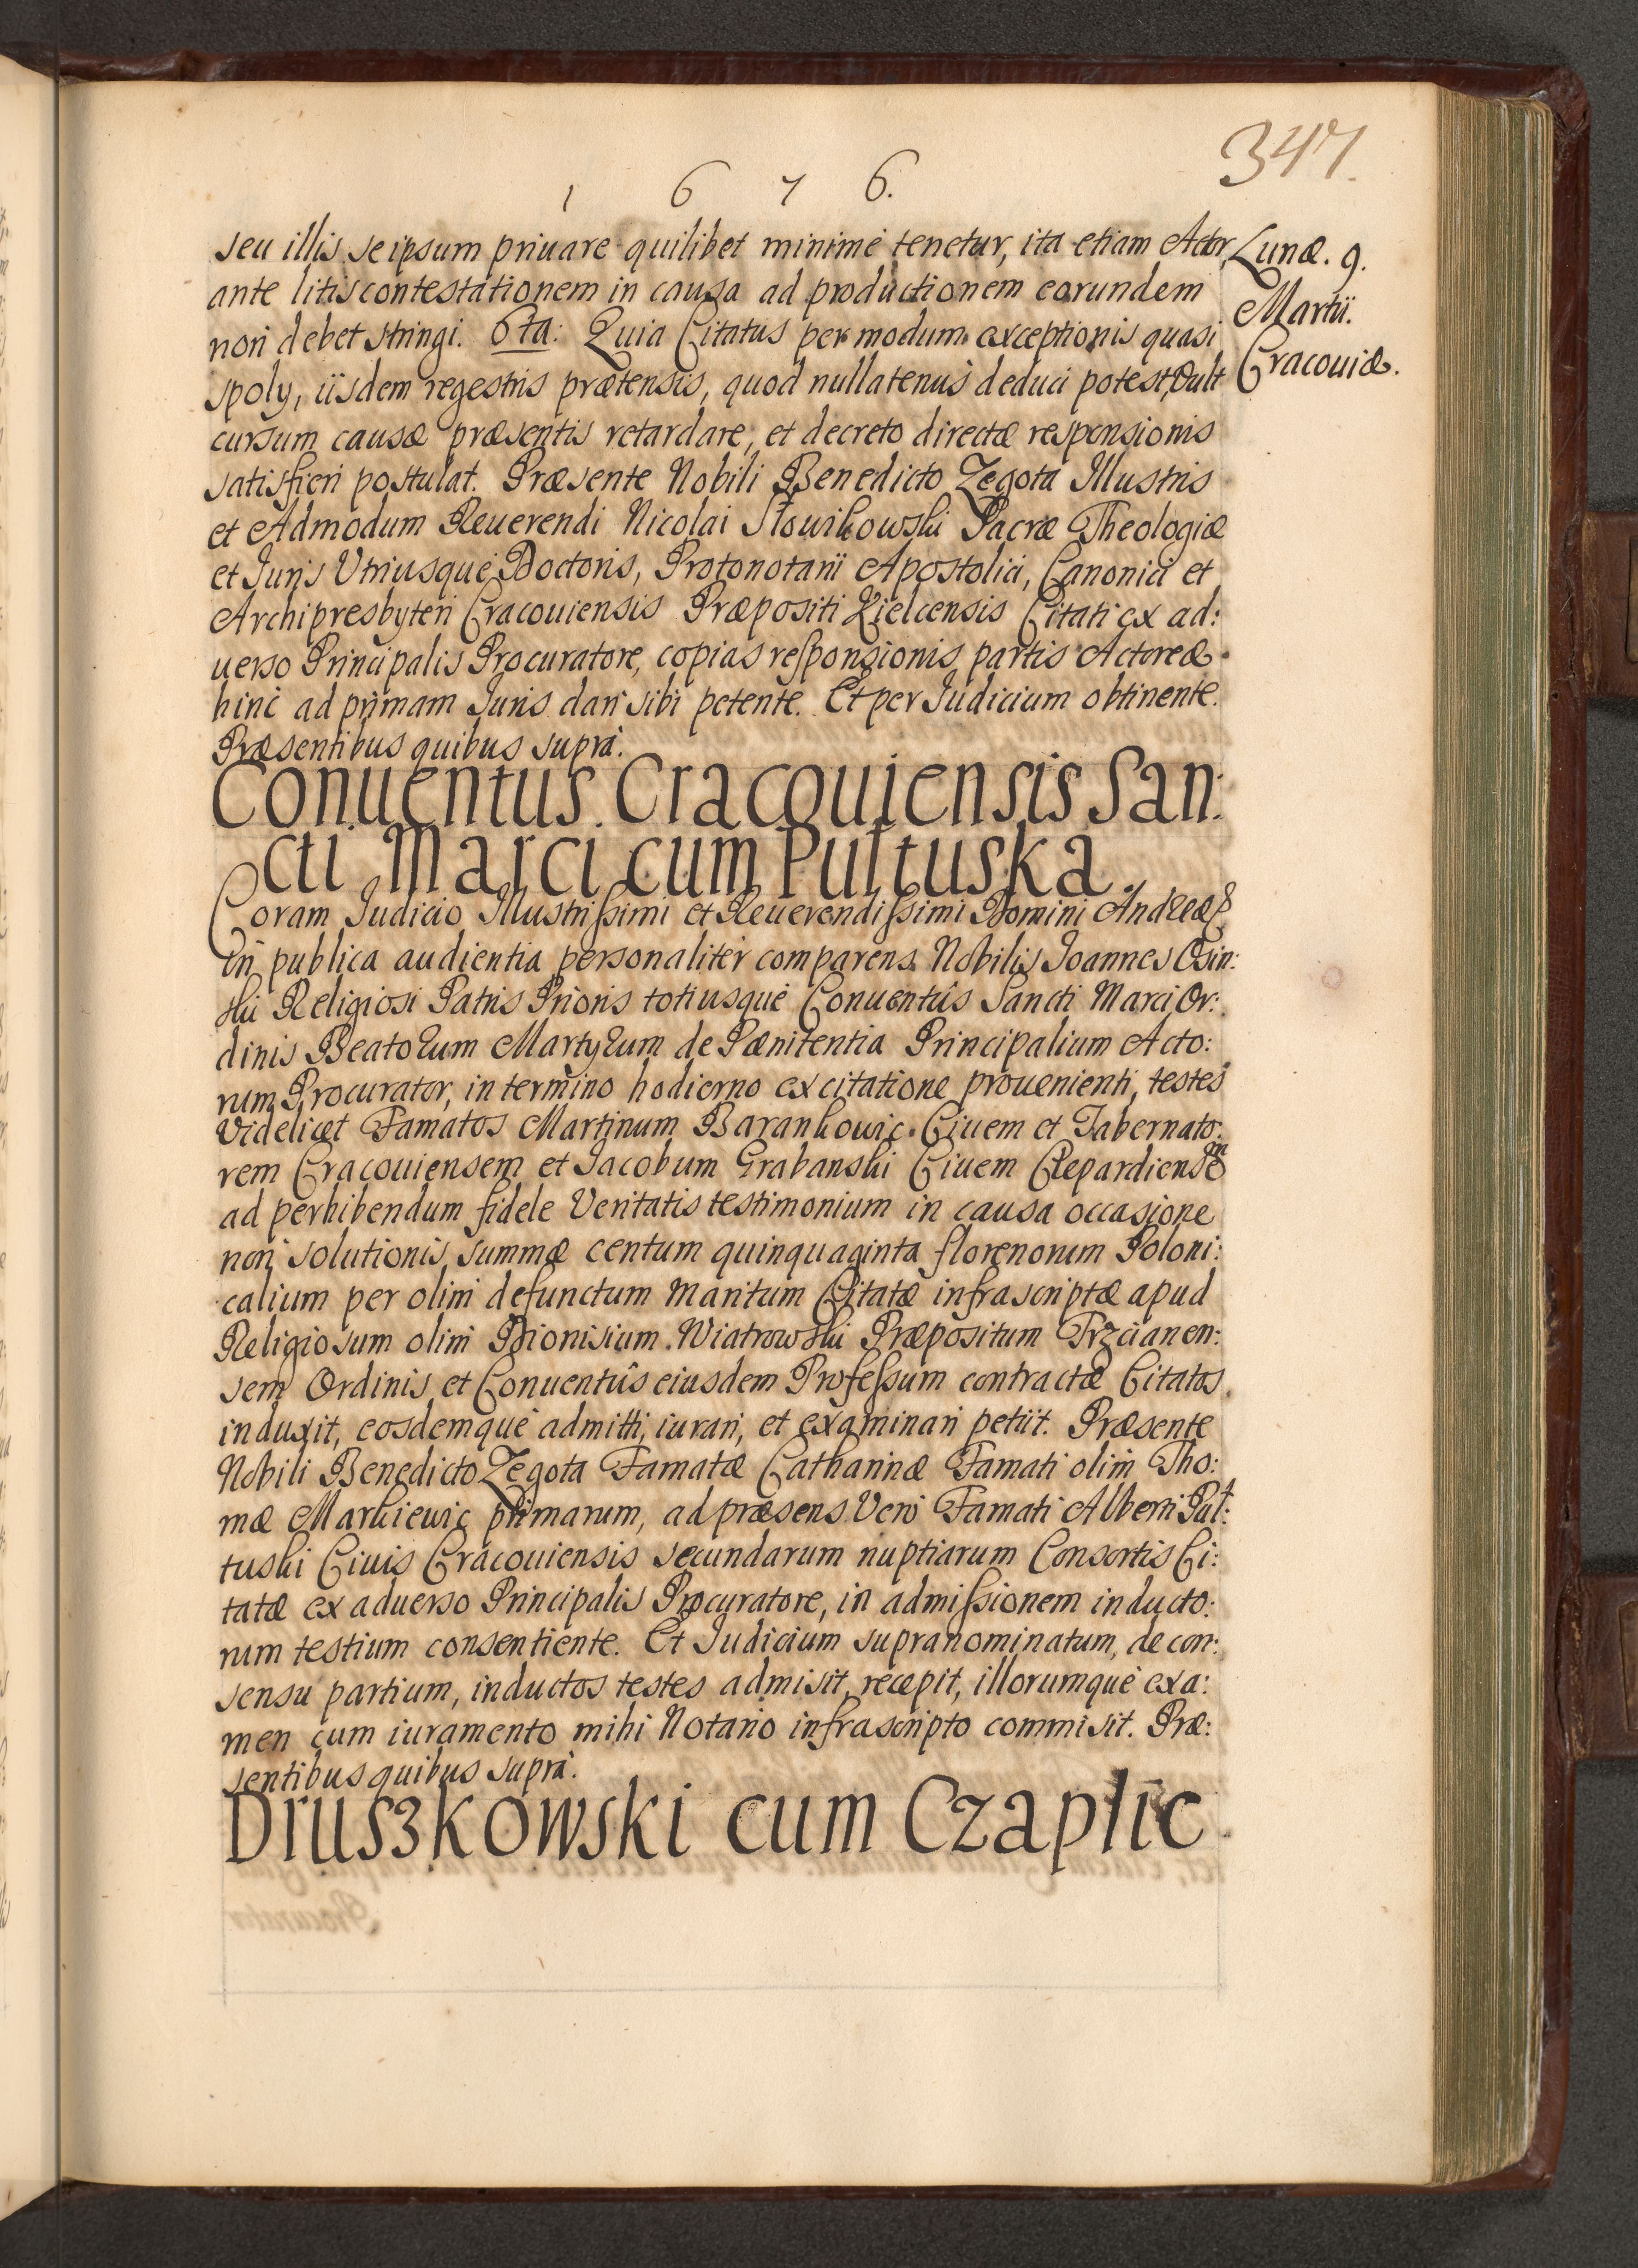 347.
1 6 7 6.
seu illis seipsum priuare quilibet minimè tenetur, ita etiam Actor
ante litis contestationem in causa ad productionem earundem
non debet stringi. 6ta: Quia Citatus per modum exceptionis quasi
spoly, iisdem regestris prætensis, quod nullatenus deduci potest, Vult
cursum causæ præsentis retardare, et decreto directæ responsionis
satisfieri postulat. Præsente Nobili Benedicto Zegota Illustris
et Admodum Reuerendi Nicolai Słowikowski Sacræ Theologiæ
et Juris Vtriusque Doctoris, Protonotarii Apostolici, Canonici et
Archipresbyteri Cracouiensis Præpositi Kielcensis Citati ex ad:
uerso Principalis Procuratore, copias responsionis partis Actoreæ
hinc ad primam Juris dari sibi petente. Et per Judicium obtinente.
Præsentibus quibus suprà.
Lunæ. 9.
Martii.
Cracouiæ.
Conuentus Cracouiensis San:
cti Marci cum Pułtuska.
Coram Judicio Illustrissimi et Reuerendissimi Domini Andreæ
in publica audientia personaliter comparens Nobilis Joannes Osin:
ski Religiosi Patris Prioris totiusque Conuentûs Sancti Marci Or:
dinis Beatorum Martyrum de Pænitentia Principalium Acto:
rum Procurator, in termino hodierno ex citatione prouenienti, testes
Videlicet Famatos Martinum Barankouic Ciuem et Tabernato:
rem Cracouiensem et Jacobum Grabanski Ciuem Clepardiensem
ad perhibendum fidele Veritatis testimonium in causa occasione
non solutionis summæ centum quinquaginta florenorum Poloni:
calium per olim defunctum Maritum Citatæ infrascriptæ apud
Religiosum olim Dionisium Wiatrowski Præpositum Trzcianen:
sem Ordinis et Conuentûs eiusdem Professum contractæ Citatos
induxit, eosdemque admitti, iurari, et examinari petiit. Præsente
Nobili Benedicto Zegota Famatæ Catharinæ Famati olim Tho:
mæ Markieuic primarum, ad præsens Verò Famati Alberti Puł:
tuski Ciuis Cracouiensis secundarum nuptiarum Consortis Ci:
tatæ ex aduerso Principalis Procuratore, in admissionem inducto:
rum testium consentiente. Et Judicium supranominatum, de con:
sensu partium, inductos testes admisit, recepit, illorumque exa:
men cum iuramento mihi Notario infrascripto commisit. Præ:
sentibus quibus suprà.
Druszkowski cum Czaplic